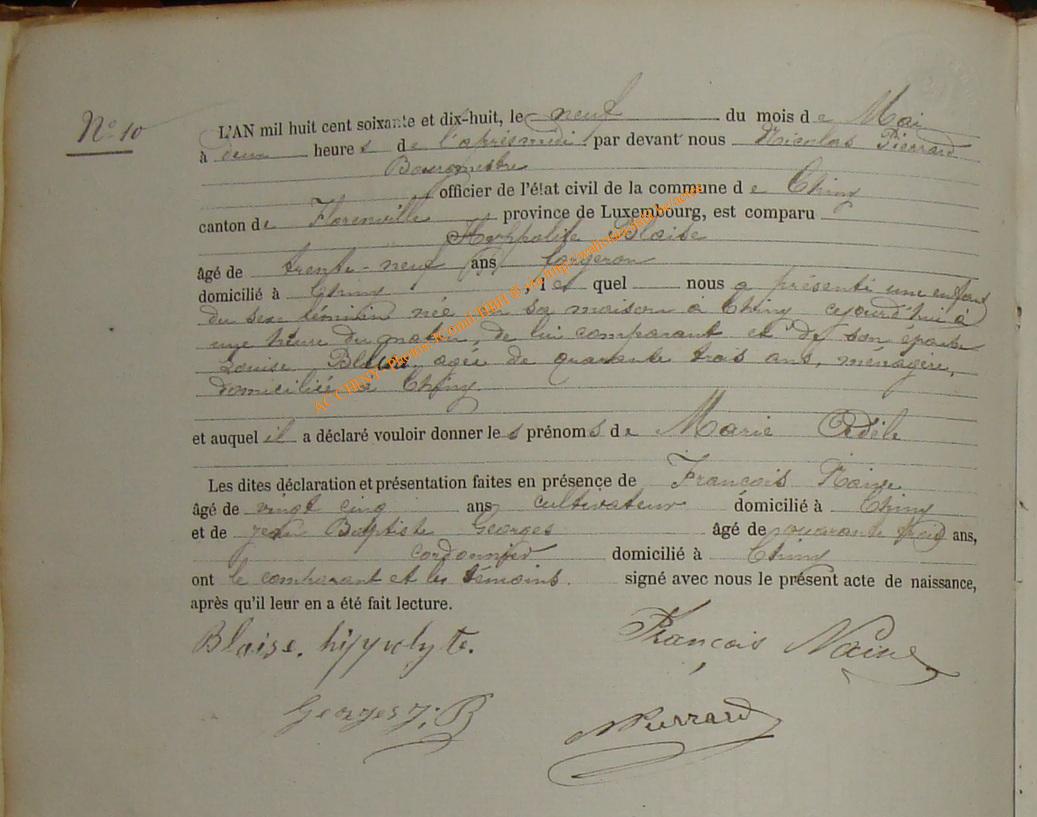 N° 10
L'AN mil huit cent soixante et dix-huit, le neuf du mois de Mai
à deux heures de l'aprèsmidi par devant nous Nicolas Pierrard
Bourgmestre
officier de l'état civil de la commune de Chiny
canton de Florenville province de Luxembourg, est comparu
Hyppolite Blaise
âgé de trente-neuf ans forgeron
domicilié à Chiny, lequel nous a présenté une enfant
du sexe féminin née en sa maison à Chiny cejourd'hui à
une heure du matin, de lui comparant et de son épouse
Louise agée de quarante trois ans, ménagère,
domiciliée à Chiny.
et auquel il a déclaré vouloir donner les prénoms de Marie Adèle
Les dites déclaration et présentation faites en présence de François Naisse
âgé de vingt cinq ans cultivateur domicilié à Chiny
et de Jean Baptiste Georges âgé de quarante trois ans,
cordonnier domicilié à Chiny
ont le comparant et les témoins signé avec nous le présent acte de naissance,
après qu'il leur en a été fait lecture.
Blaise, hippolyte.
François
Georges J. B
NPierrard
ACCHINY